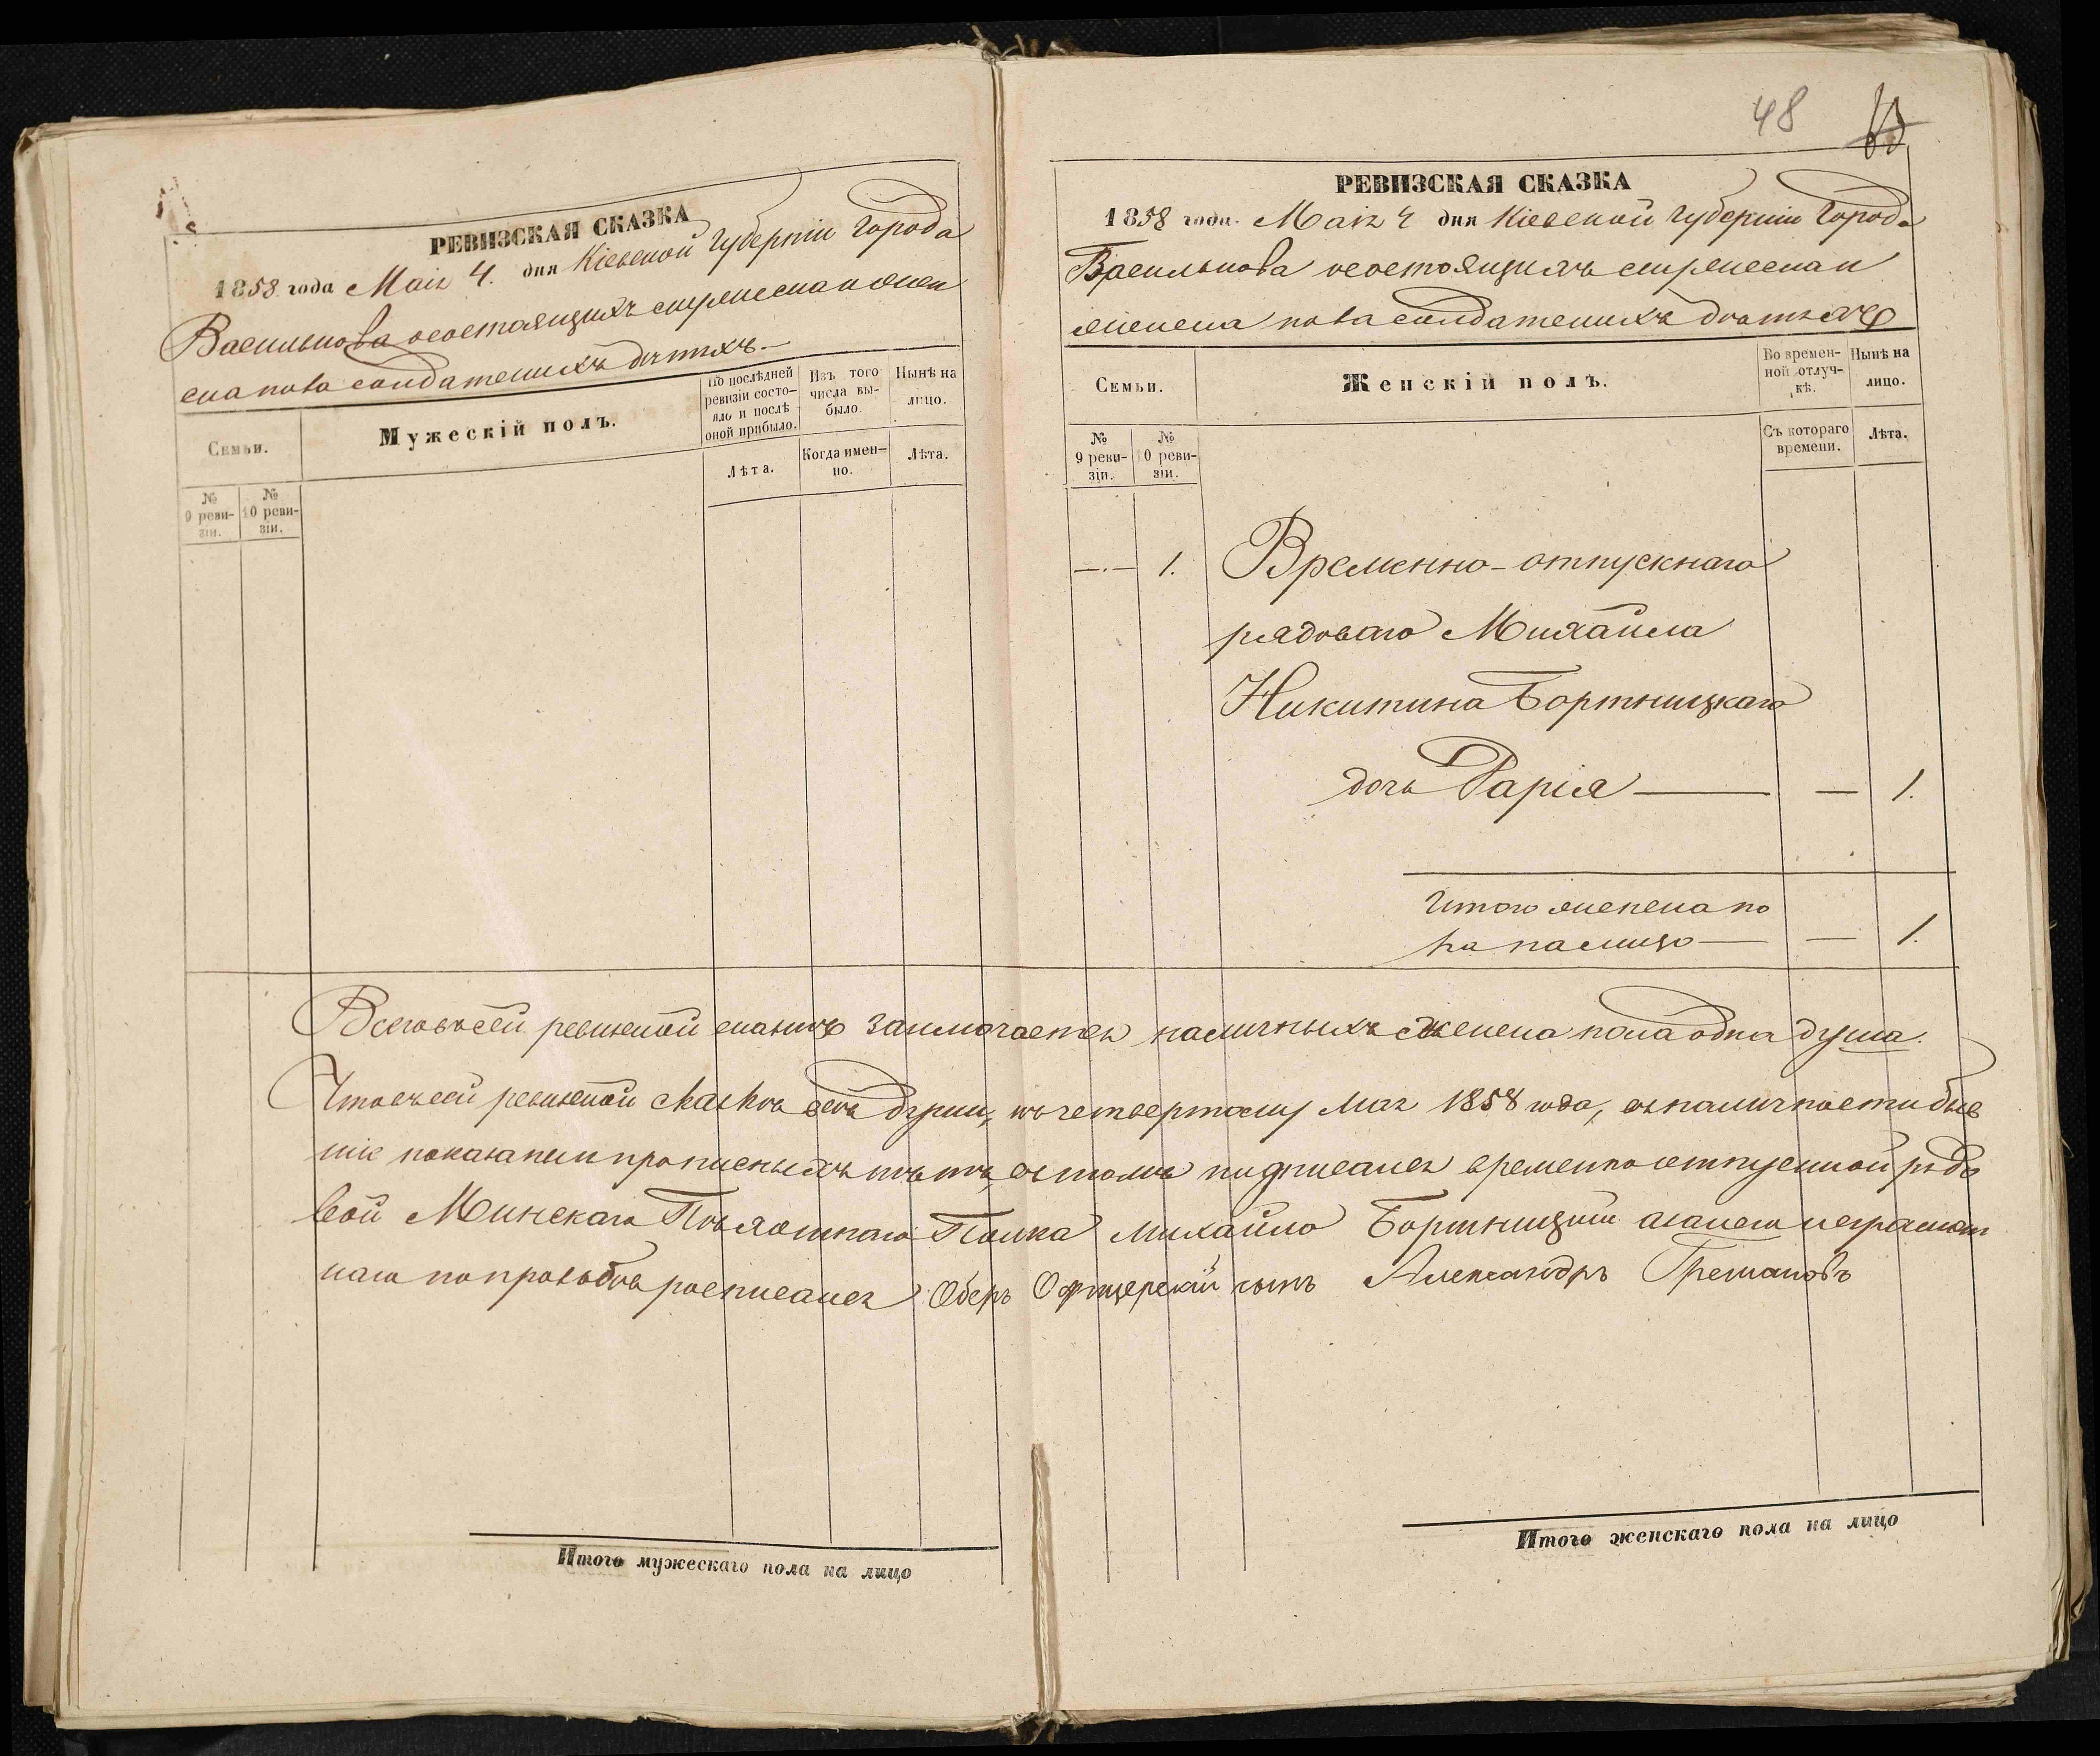 РЕВИЗСКАЯ СКАЗКА
1858 года Маія 4. дня Кіевской Губерніи Города
Василькова о состоящихъ мужескаго и жен
скаго пола солдатскихъ дѣтяхъ.—
Семьи.
Мужескій полъ.
По послѣдней ревизіи состо-
яло и послѣ
оной прибыло.
Изъ того
числа вы-
было.
Нынѣ на
лицо.
Лѣта.
Когда имен-
но.
Лѣта.
№
9 реви-
зіи.
№
10 реви-
зіи.
Итого мужескаго пола на лицо
48
РЕВИЗСКАЯ СКАЗКА
1858 года Маія 4 дня Кіевской Губерніи Города
Василькова о состоящихъ мужескаго и
женскаго пола солдатскихъ дѣтяхъ
Семьи.
Женскій полъ.
Во времен-
ной отлуч-
кѣ.
Нынѣ на
лицо.
Съ котораго
времени.
Лѣта.
№
9 реви-
зіи.
№
10 реви-
зіи.
—.— 1. Временно-отпускнаго
рядоваго Михайла
Никитина Бортницкаго
дочь Дарія — — 1.
Итого женскаго по
ла на лицо — — 1.
Всего въ сей ревизской сказкѣ заключается наличныхъ женска пола одна душа.
Что въ сей ревизской сказкѣ всѣ души, къ четвертому Мая 1858 года, въ наличности быв
шіе показаны и прописныхъ нѣтъ, въ томъ подписался временно отпускной рядо
вой Минскаго Пѣхотнаго Полка Михайло Бортницкій а за него неграмот
наго по прозьбѣ росписался Оберъ Офицерскій сынъ Александръ
Итого женскаго пола на лицо